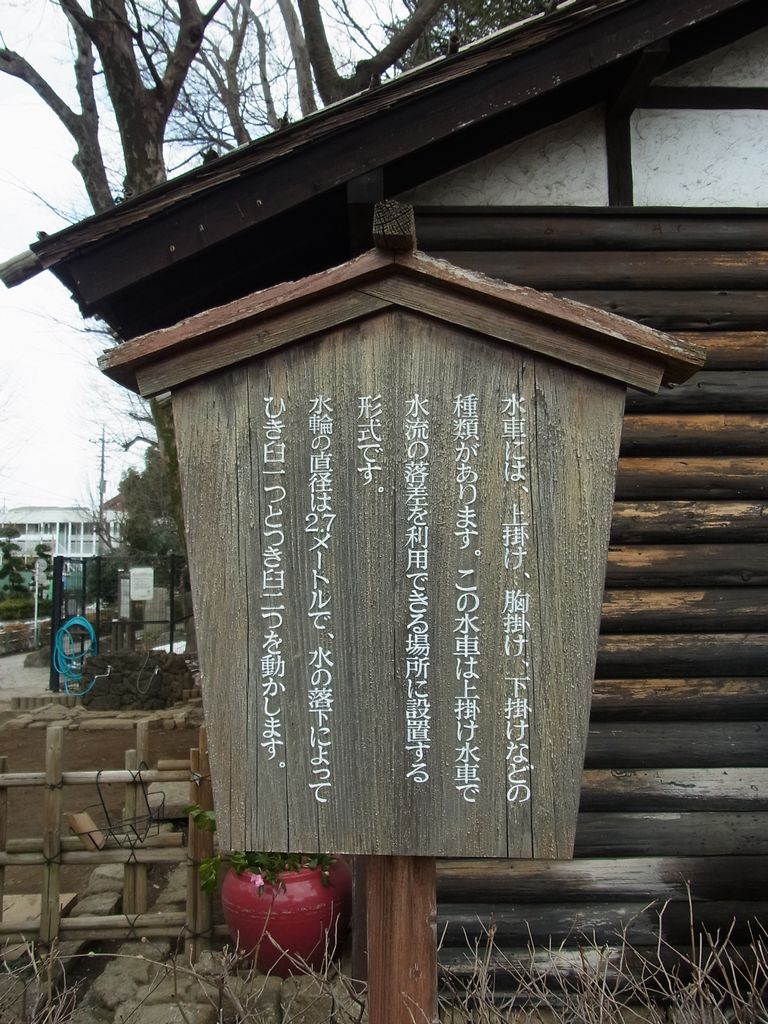 水車には、上掛け、胸掛け、下掛けなどの
種類があります。この水車は上掛け水車で
水流の落差を利用できる場所に設置する
形式です。
水輪の直径は2.7メートルで、水の落下によって
ひき臼二つとつき臼二つを動かします。